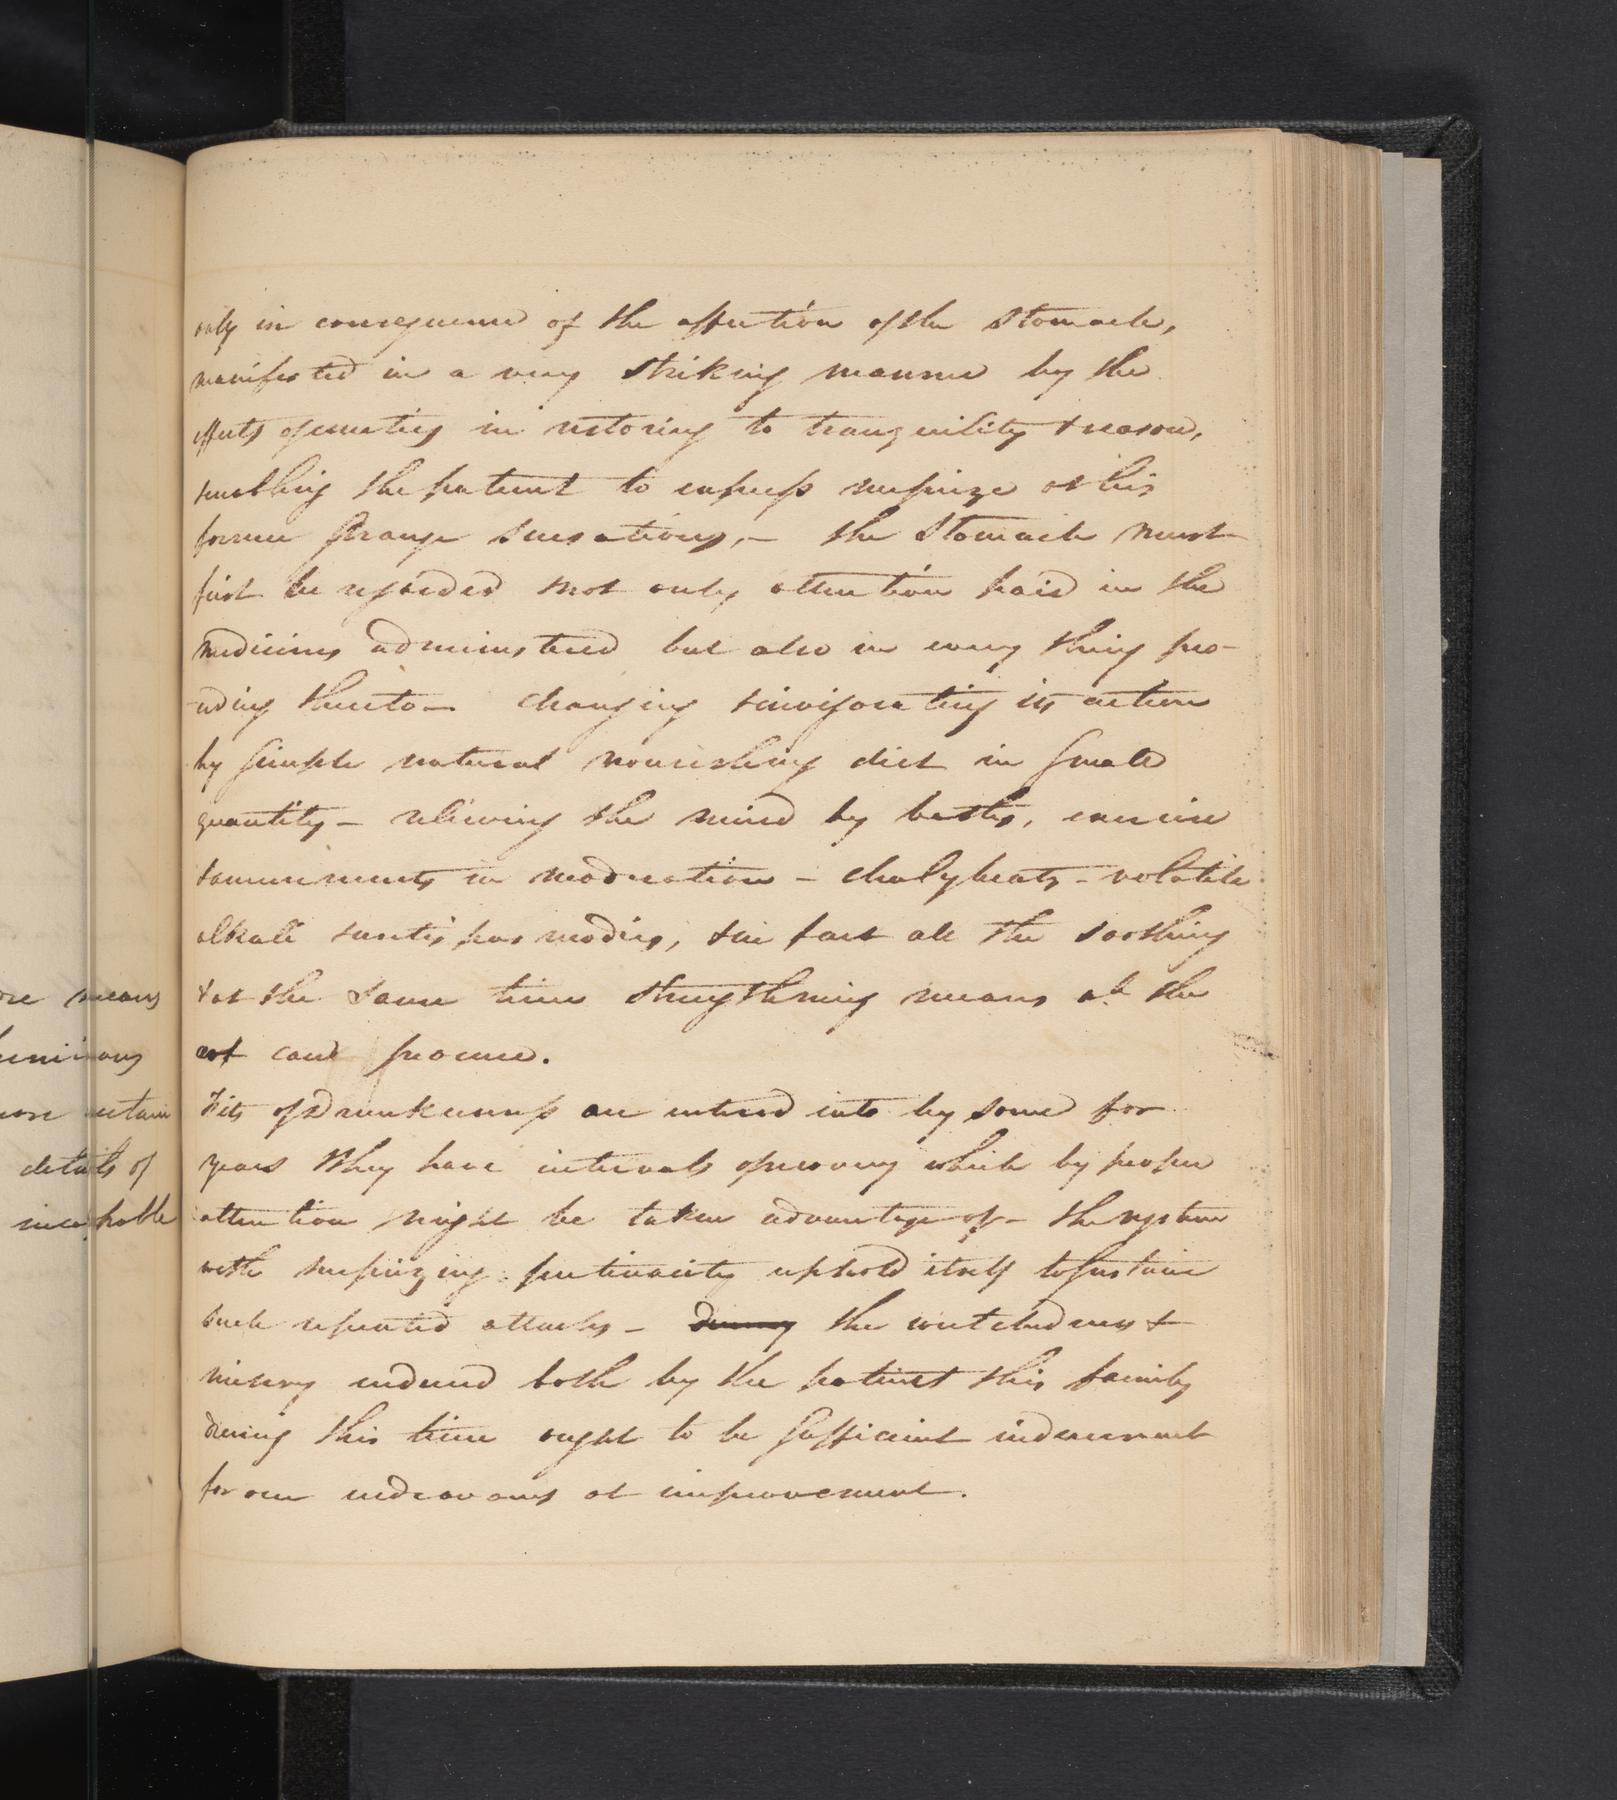 only in consequence of the affection of the stomach,
manifested in a very striking manner by the
effects of emetics in restoring to tranquility & reason,
& enabling the patient to express surprize at his
former strange sensations, – the stomach must
first be regarded not only attention paid in the
medicines administered but also in every thing pro-
ceeding thereto – changing & invigorating its action
by simple natural nourishing diet in small
quantity – relieving the mind by baths, exercise
& amusements in moderation – chalybeats – volatile
alkali & antispasmodics, & in fact all the soothing
& at the same time strengthening means all the
art can procure.
Fits of drunkenness are entered into by some for
years & they have intervals of recovery which by proper
attention might be taken advantage of – the system
with surprizing pertinacity uphold itself to sustain
such repeated attacks – the wretchedness &
misery endured both by the patient & his family
during this time ought to be sufficient inducement
for our endeavours at improvement.
means
details of